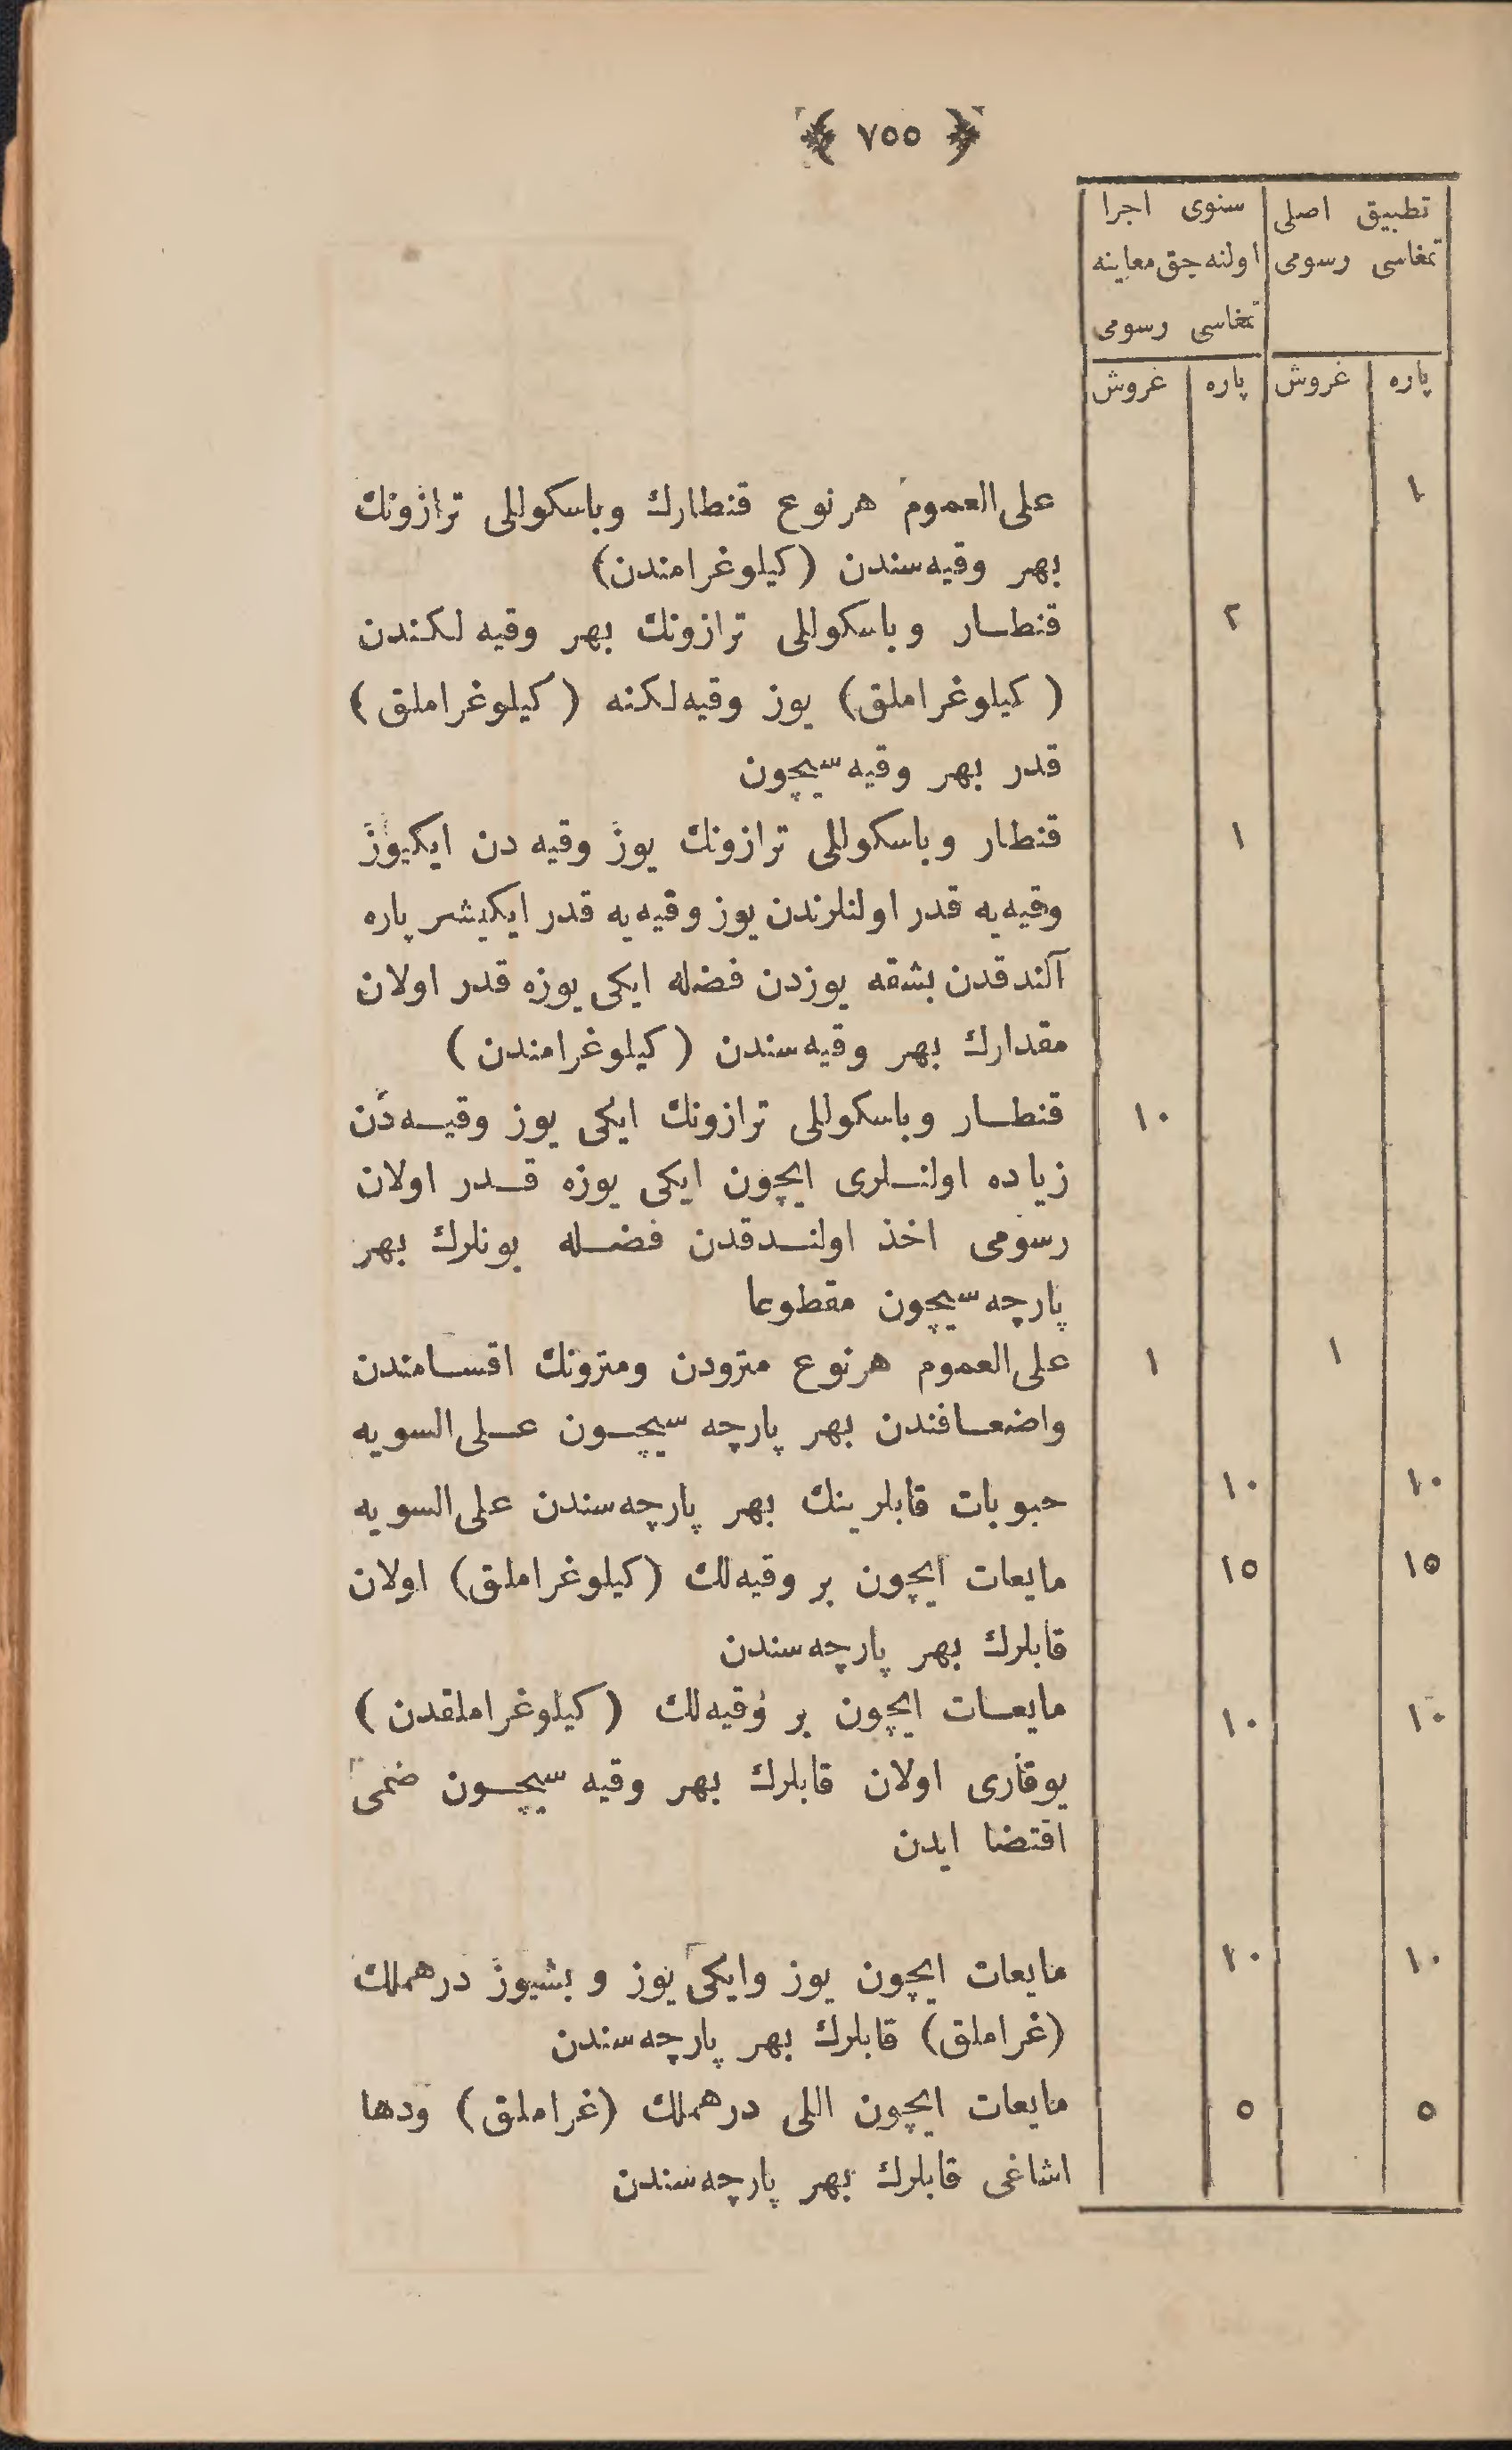 ﴿ ٧٥٥ ﴾
تطبيق اصلى
تمغاسى رسومى
سنوى اجرا
اولنه‌جق معاينه
تمغاسى رسومى
پاره غروش پاره غروش
١ على‌العموم هرنوع قنطارك وباسكوللى ترازونك
بهر وقيه‌سندن (كيلوغرامندن)
٢ قنطار وباسكوللى ترازونك بهر وقيه لكندن
(كيلوغراملق) يوز وقيه‌لكنه (كيلوغراملق)
قدر بهر وقيه‌سيچون
١ قنطار وباسكوللى ترازونك يوز وقيه دن ايكيوز
وقيه‌يه قدر اولنلرندن يوز وقيه‌يه قدر ايكيشر پاره
آلندقدن بشقه يوزدن فضله ايكى يوزه قدر اولان
مقدارك بهر وقيه‌سندن (كيلوغرامندن)
١٠ قنطار وباسكوللى ترازونك ايكى يوز وقيه‌دن
زياده اولنلرى ايچون ايكى يوزه قدر اولان
رسومى اخذ اولندقدن فضله بونلرك بهر
پارچه‌سيچون مقطوعا
١ ١ على‌العموم هرنوع مترودن ومترونك اقسامندن
واضعافندن بهر پارچه‌سيچون على‌السويه
١٠ ١٠ حبوبات قابلرينك بهر پارچه‌سندن على‌السويه
١٥ ١٥ مايعات ايچون بر وقيه‌لك (كيلوغراملق) اولان
قابلرك بهر پارچه‌سندن
١٠ ١٠ مايعات ايچون بر وقيه‌لك (كيلوغراملقدن)
يوقارى اولان قابلرك بهر وقيه‌سيچون ضمى
اقتضا ايدن
١٠ ١٠ مايعات ايچون يوز وايكى يوز و بشيوز درهملك
(غراملق) قابلرك بهر پارچه‌سندن
٥ ٥ مايعات ايچون اللى درهملك (غراملق) ودها
اشاغى قابلرك بهر پارچه‌سندن